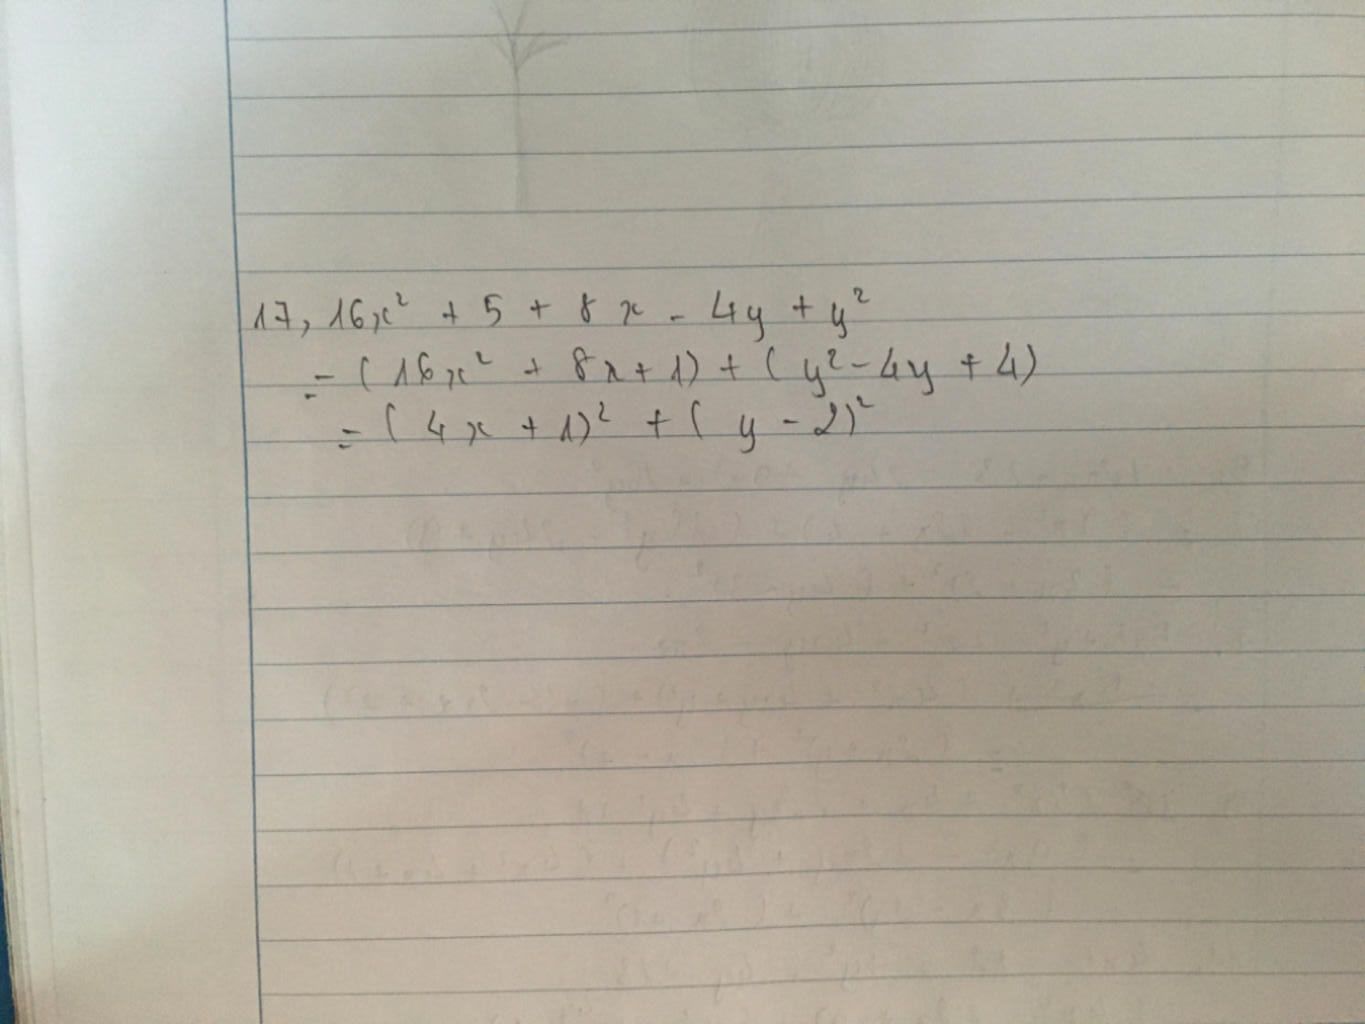 17, 16x² + 5 + 8x - 4y + y²
= (16x² + 8x + 1) + (y² - 4y + 4)
= (4x + 1)² + (y - 2)²